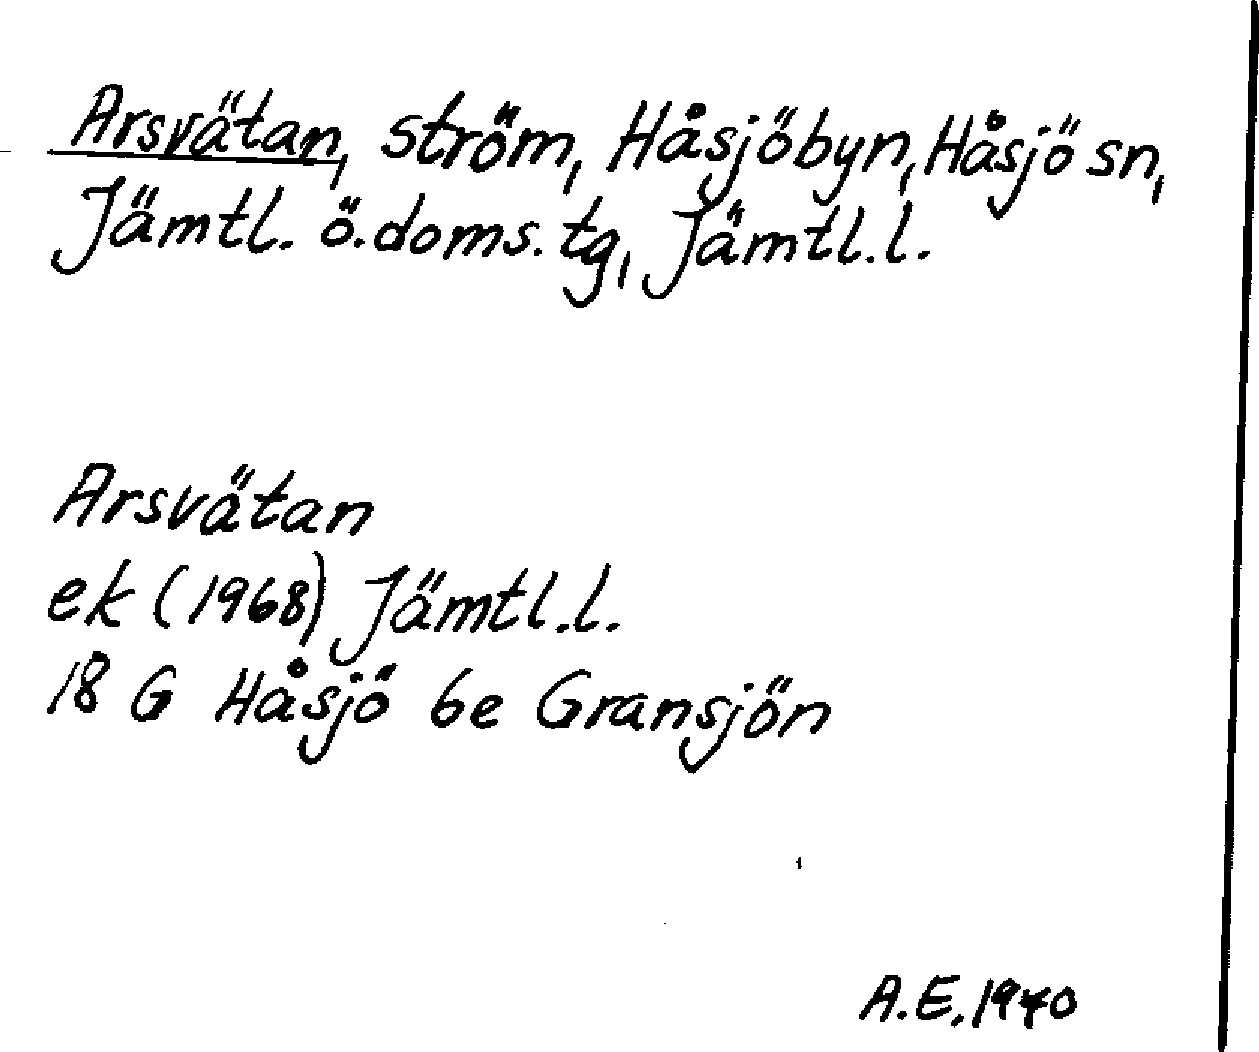 Arsvätan, ström, Håsjöbyn, Håsjö sn,
Jämtl. ö. doms. tg, Jämtl. l.
Arsvätan
ek (1968) Jämtl. l.
18 G Håsjö 6e Gransjön
A.E. 1940